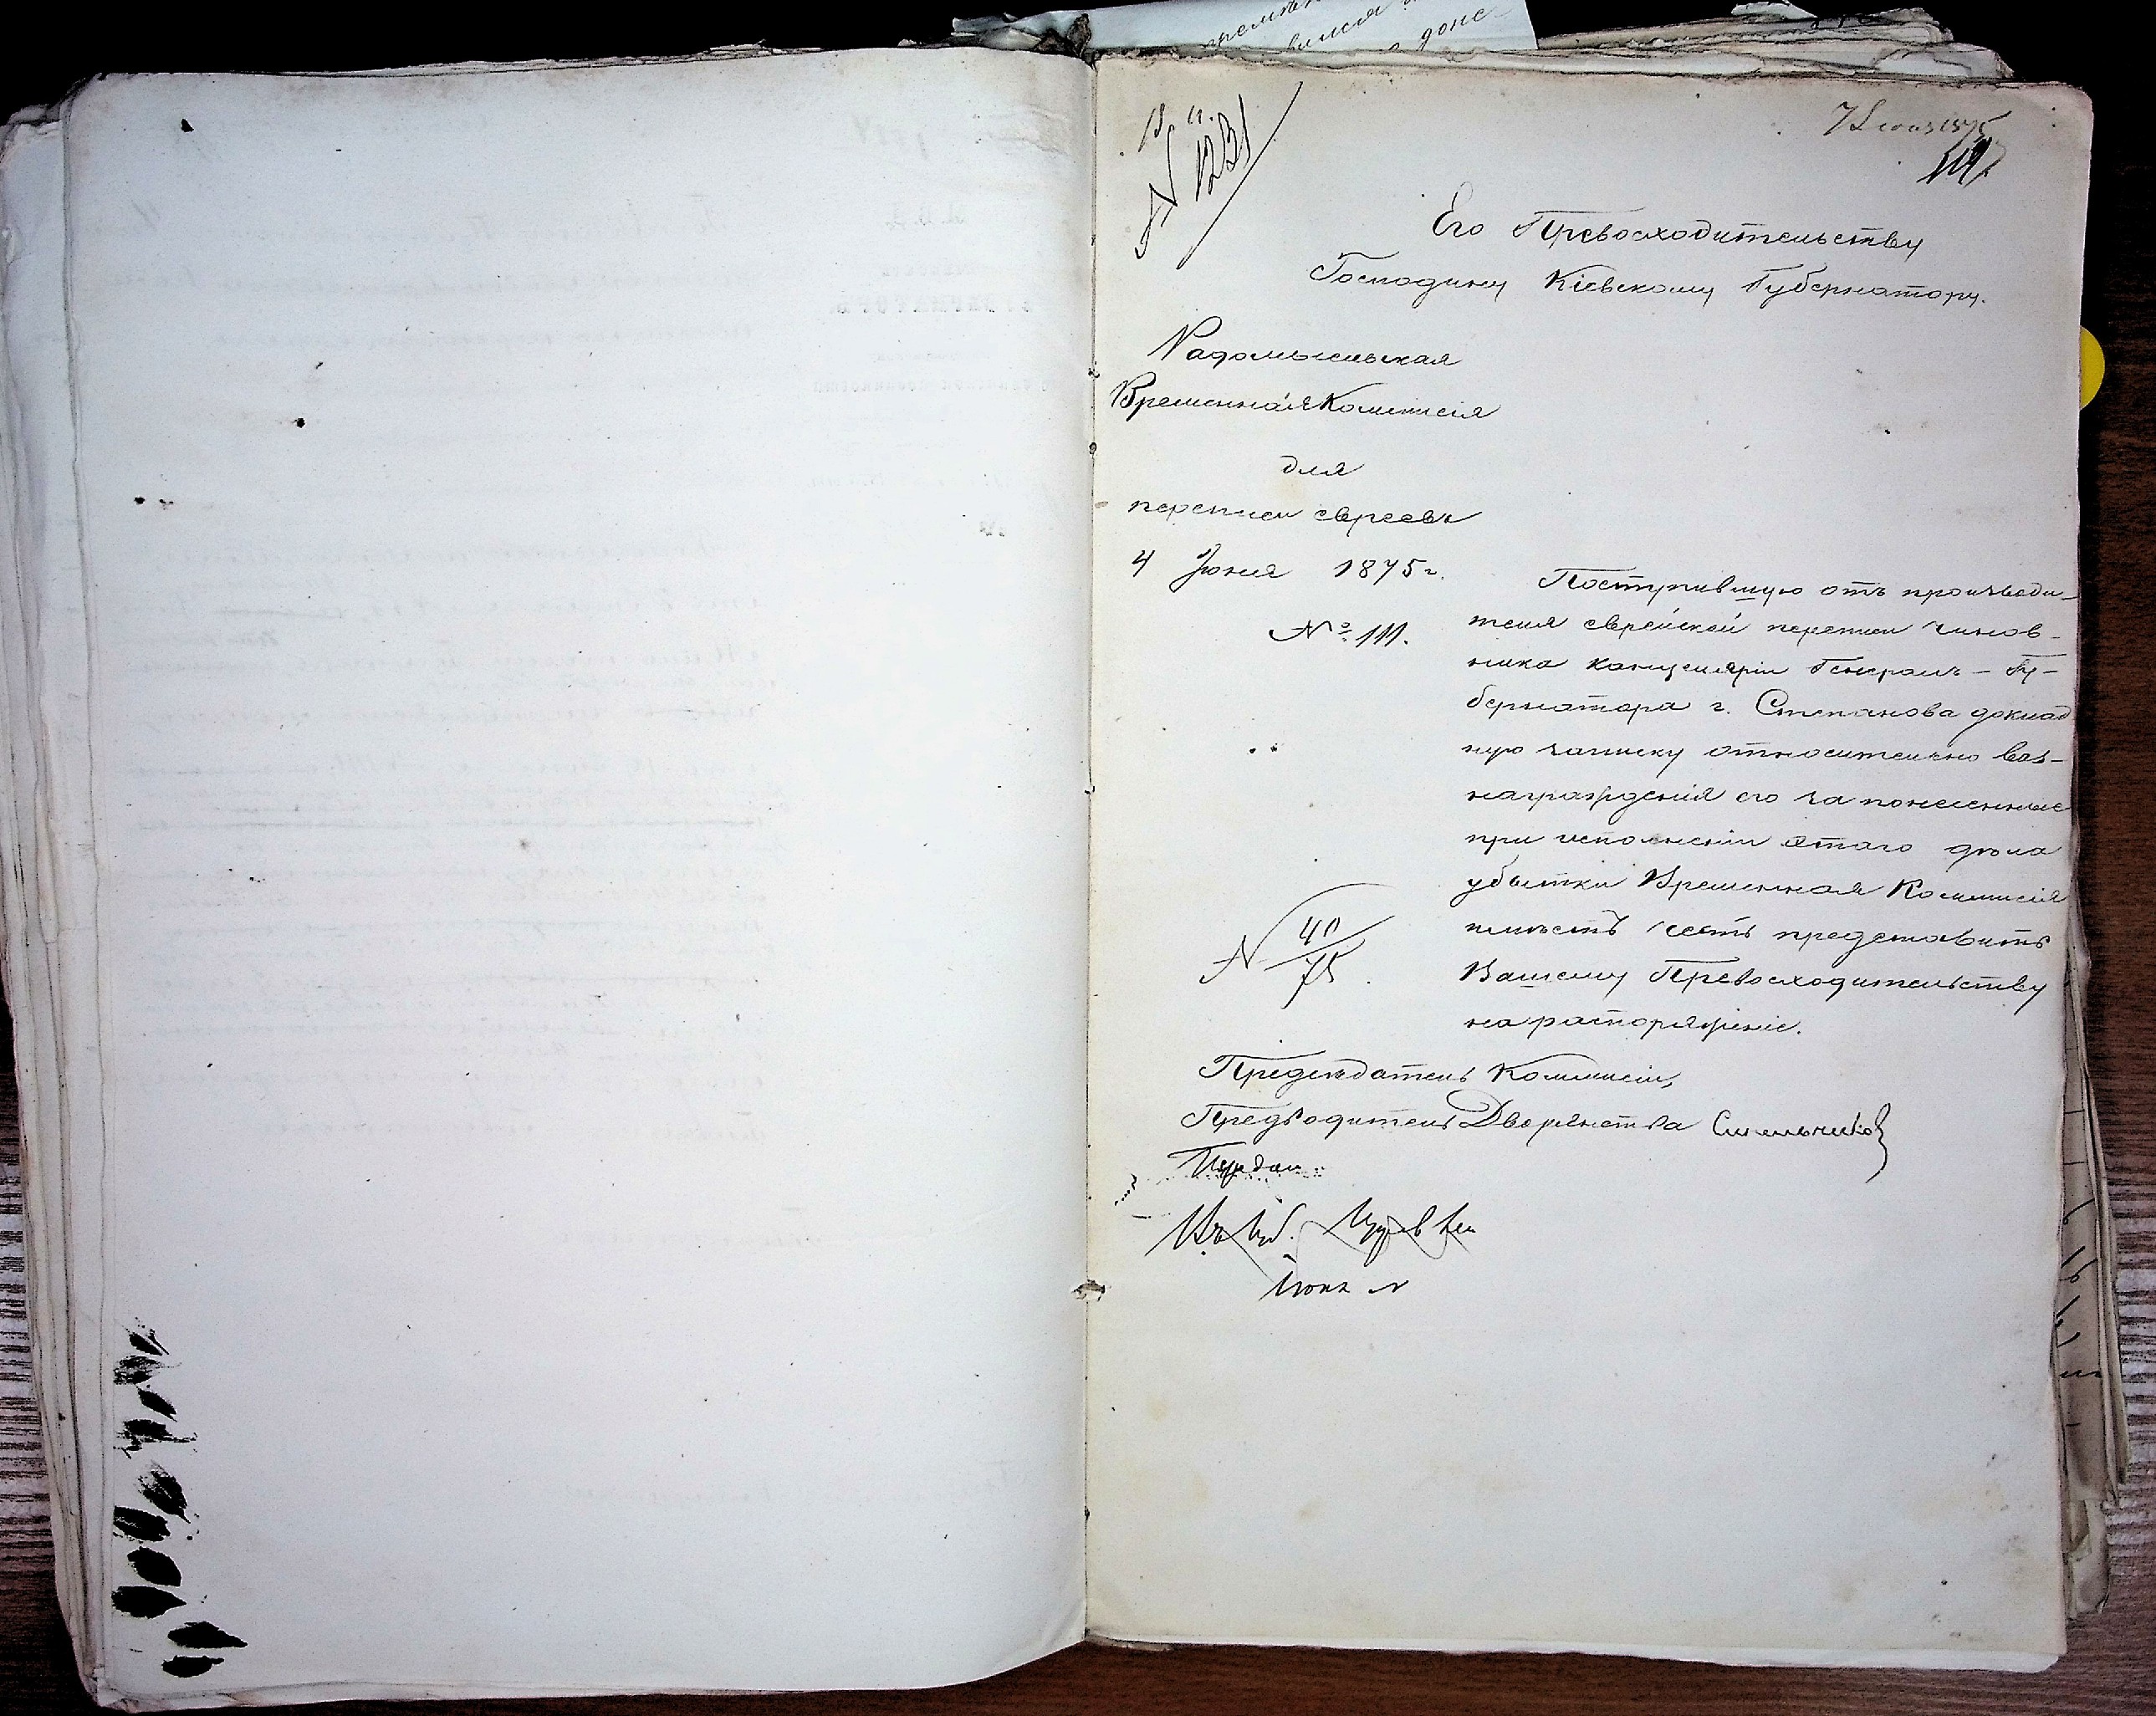 № 1231
Его Превосходительству
Господину Кіевскому Губернатору.
Радомысльская
Временная Коммисія
для
переписи евреевъ
4 Іюня 1875 г.
№ 111.
Поступившую отъ производи-
теля еврейской переписи чинов-
ника канцеляріи Генералъ-Гу-
бернатора г. Степанова доклад
ную записку относительно воз-
награжденія его за понесенные
при исполненіи этаго дѣла
убытки Временная Коммисія
имѣетъ честь представить
Вашему Превосходительству
на распоряженіе.
№ 40/75
Предсѣдатель Коммисіи,
Предводитель Дворянства